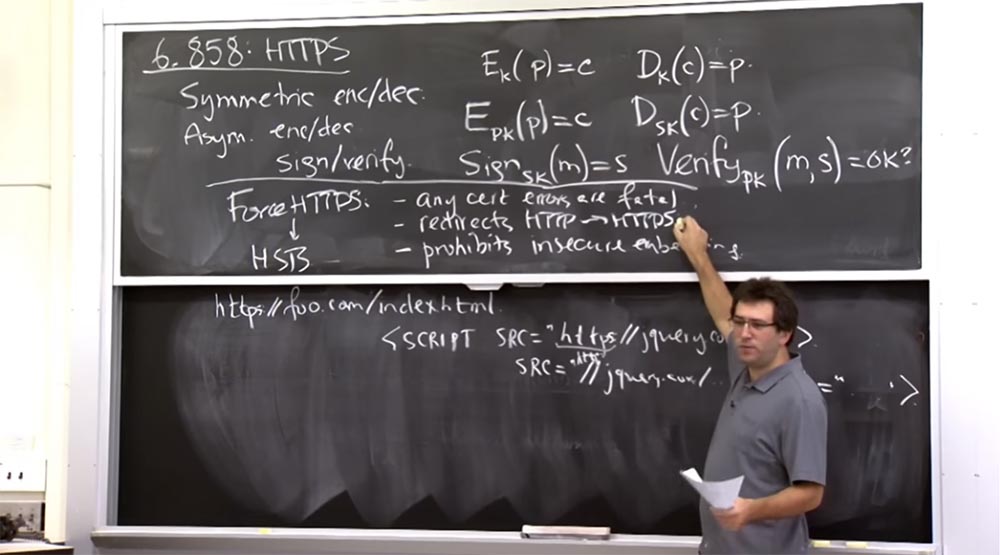 6.858: HTTPS
Symmetric enc/dec. E_K(p)=c D_K(c)=p.
Asym. enc/dec E_PK(p)=c D_SK(c)=p.
sign/verify. Sign_SK(m)=s Verify_PK(m,s)=OK?
ForceHTTPS: - any cert errors are fatal
- redirects HTTP → HTTPS
↓
HSTS - prohibits insecure
https://foo.com/index.html.
<SCRIPT SRC="https://jquery.co >.
SRC="//jquery.com/.. =" . '>